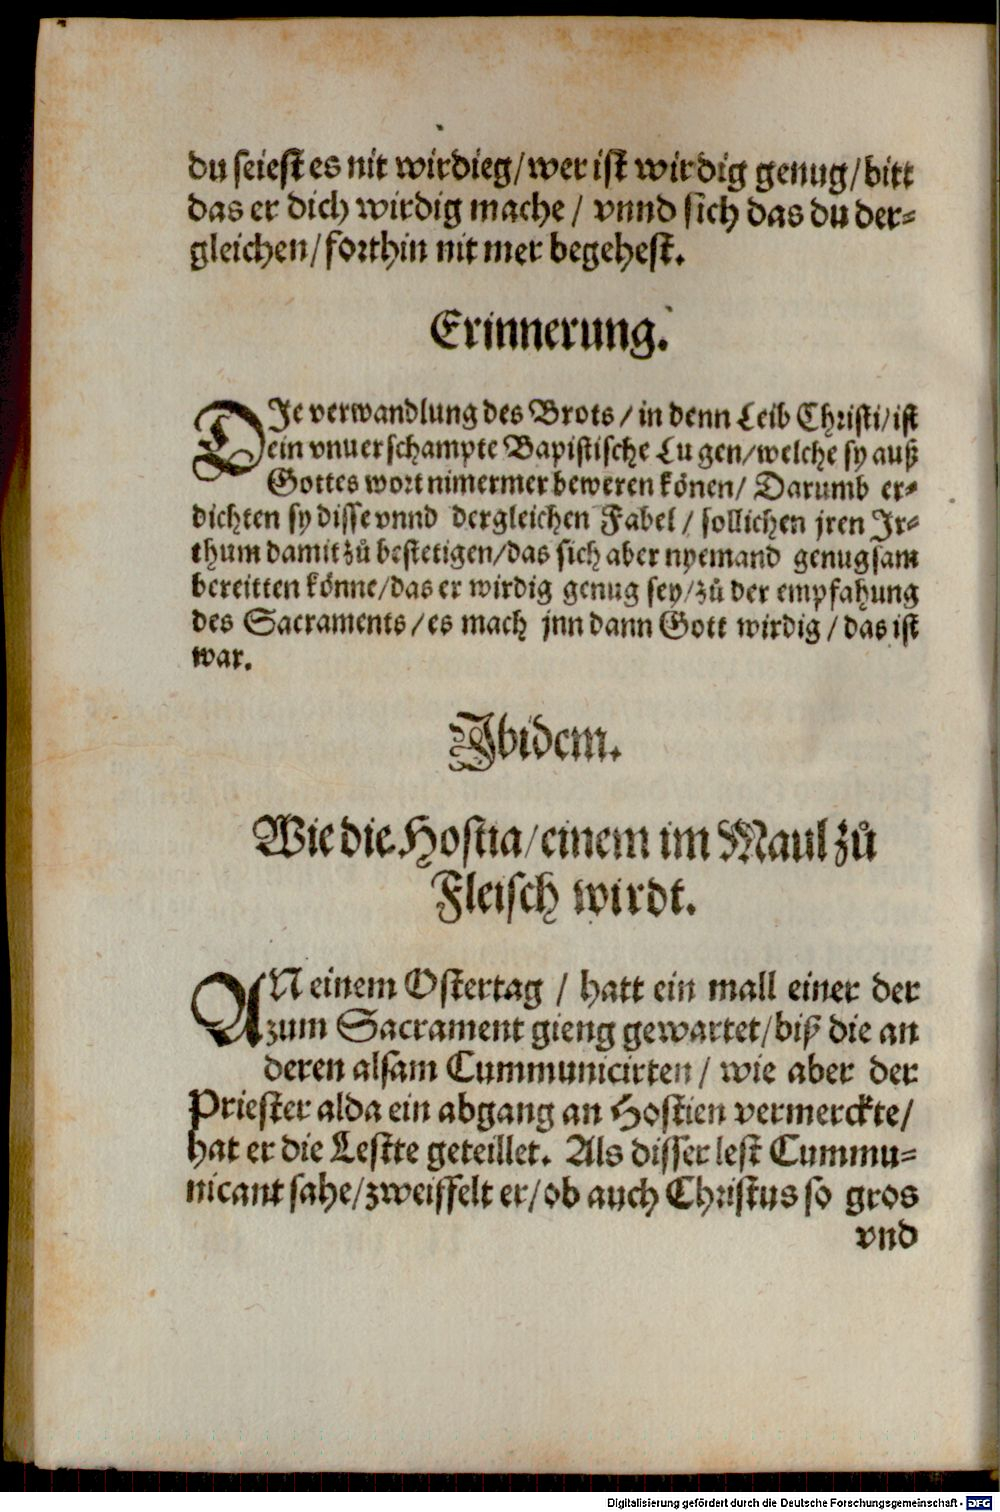 du seiest es nit wirdieg/wer ist wirdig genug/bitt
das er dich wirdig mache / vnnd sich das du der-
gleichen/forthin nit mer begehest.
Erinnerung.
DIe verwandlung des Brots / in denn Leib Christi/ist
ein vnuerschampte Bapistische Lugen/welche sy auß
Gottes wort nimermer beweren könen/ Darumb er-
dichten sy disse vnnd dergleichen Fabel / sollichen jren Jr-
thum damit zů bestetigen/das sich aber nyemand genugsam
bereitten könne/das er wirdig genug sey/zů der empfahung
des Sacraments/es mach jnn dann Gott wirdig / das ist
war.
Ibidem.
Wie die Hostia/einem im Maul zů
Fleisch wirdt.
AN einem Ostertag / hatt ein mall einer der
zum Sacrament gieng gewartet/biß die an
deren alsam Cummunicirten / wie aber der
Priester alda ein abgang an Hostien vermerckte/
hat er die Lestte geteillet. Als disser lest Cummu-
nicant sahe/zweiffelt er/ob auch Christus so gros
vnd
Digitalisierung gefördert durch die Deutsche Forschungsgemeinschaft - DFG